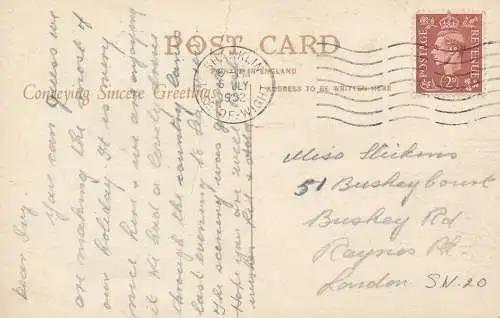 POST CARD
PRINTED IN ENGLAND
Conveying Sincere Greetings
ADDRESS TO BE WRITTEN HERE
SHANKLIN
ISLE-OF-WIGHT
JLY
1952
POSTAGE
REVENUE
2D
Dear
You can guess we
are making the most of
our holiday. It is very
nice here & we are enjoying
it. We had a lovely
through the country lanes
last evening to
The scenery was
Hope you are well
Miss
51 Bushey Court
Bushey Rd
Raynes Pk.
London SW.20